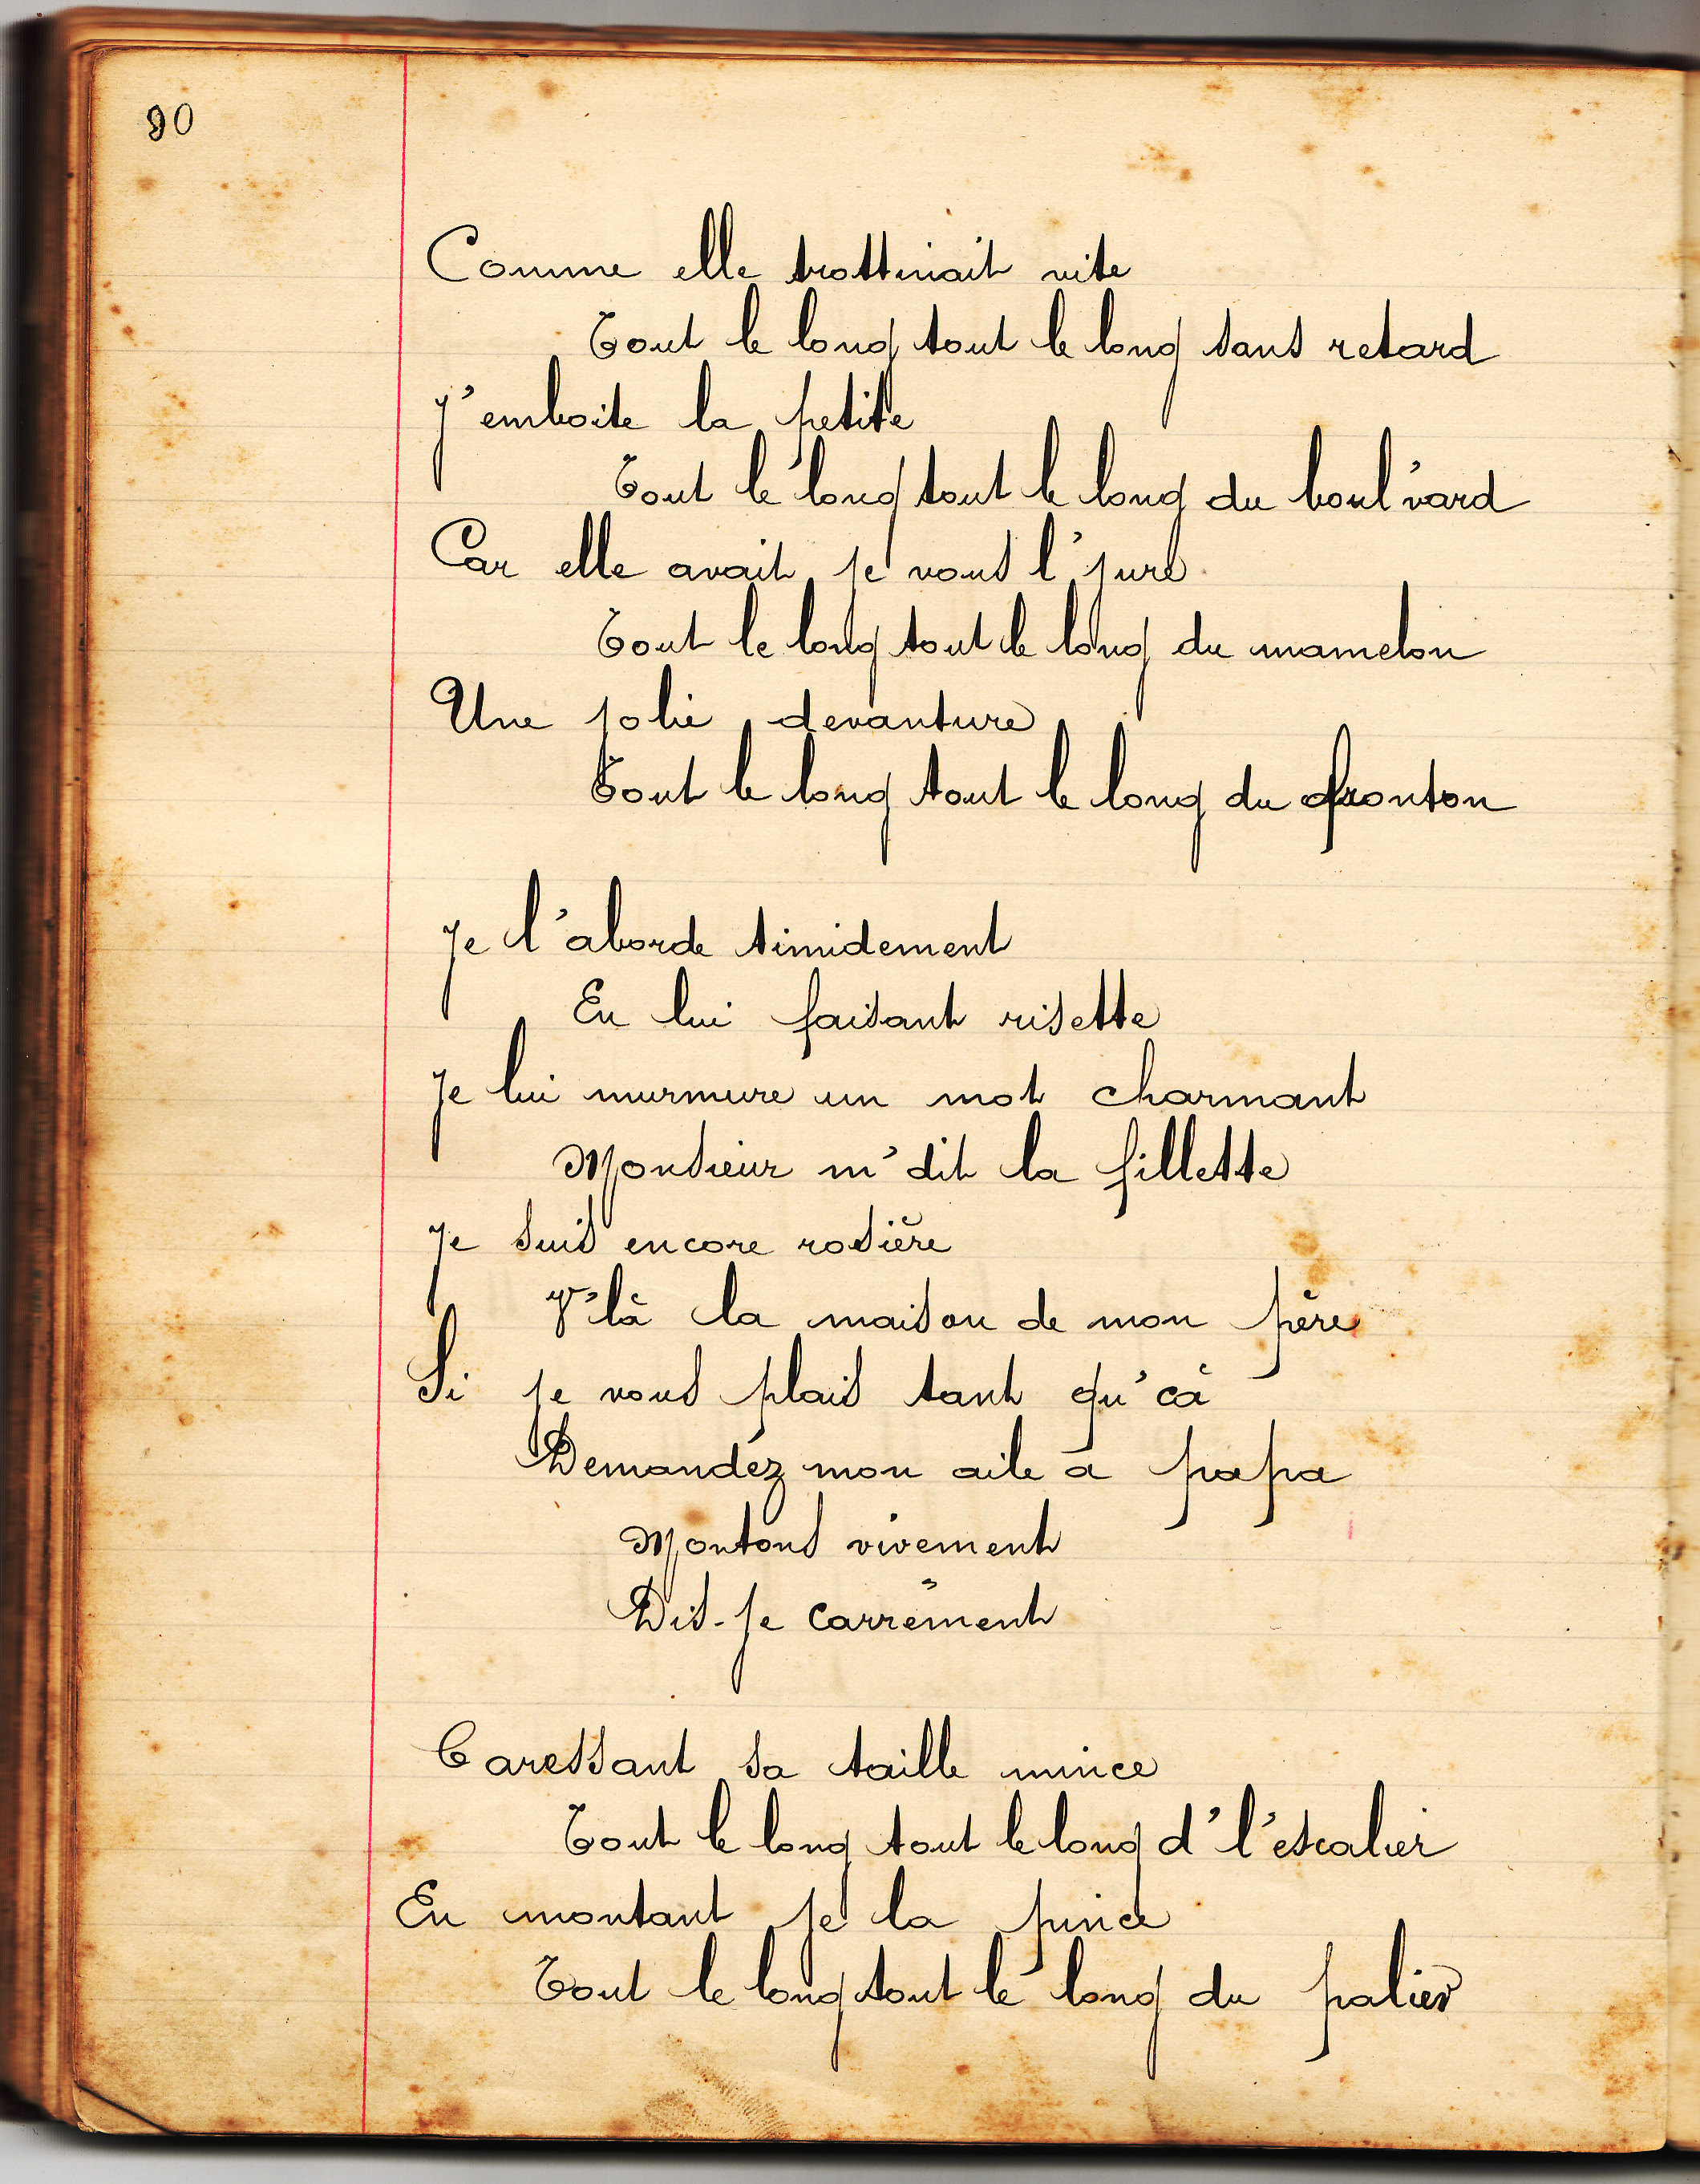 90
Comme elle trottinait vite
Tout le long tout le long sans retard
J'emboite la petite
Tout le long tout le long du boul'vard
Car elle avait je vous l'jure
Tout le long tout le long du mamelon
Une jolie devanture
Tout le long tout le long du fronton
Je l'aborde timidement
En lui faisant risette
Je lui murmure un mot charmant
Monsieur m'dit la fillette
Je suis encore rosière
V'là la maison de mon père
Si je vous plais tant qu'ca
Demandez mon aile à papa
Montons vivement
Dis-je carrément
Caressant sa taille mince
Tout le long tout le long d'l'escalier
En montant je la pince
Tout le long tout le long du palier